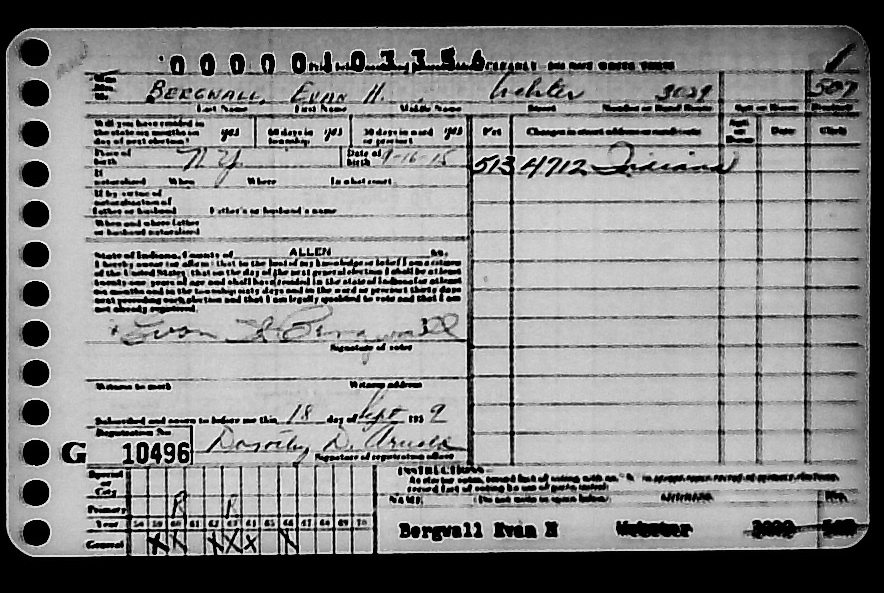 BERGWALL, EVAN H. Webster 3029 507
Last Name First Name Middle Name Street
Will you have resided in
the state six months on yes 60 days in yes 30 days in ward yes Pct Date Clerk
day of next election? township or precinct
Place of birth N.Y. Date of birth 9-16-15 513 4712 Indiana
If naturalized When Where In what court
If by virtue of
naturalization of
father or husband Father's or husband's name
When and where father
or husband naturalized
State of Indiana, County of ALLEN ss.
I hereby swear (or affirm) that to the best of my knowledge or belief I am a citizen
of the United States; that on the day of the next general election I shall be at least
twenty-one years of age and shall have resided in the state of Indiana for at least
six months and in the township sixty days and in the ward or precinct thirty days
next preceding such election and that I am legally qualified to vote and that I am
not already registered.
Evan H Bergwall
Signature of voter
Witness to mark Witness address
Subscribed and sworn to before me this 18 day of Sept 1959
Registration No.
G 10496 Dorothy D.
Signature of registration officer
Special
or
City
Primary R R
INSTRUCTIONS
NAME
Year 58 59 60 61 62 63 64 65 66 67 68 69 70
General X X X X X X
Bergwall Evan H Webster 3029 507